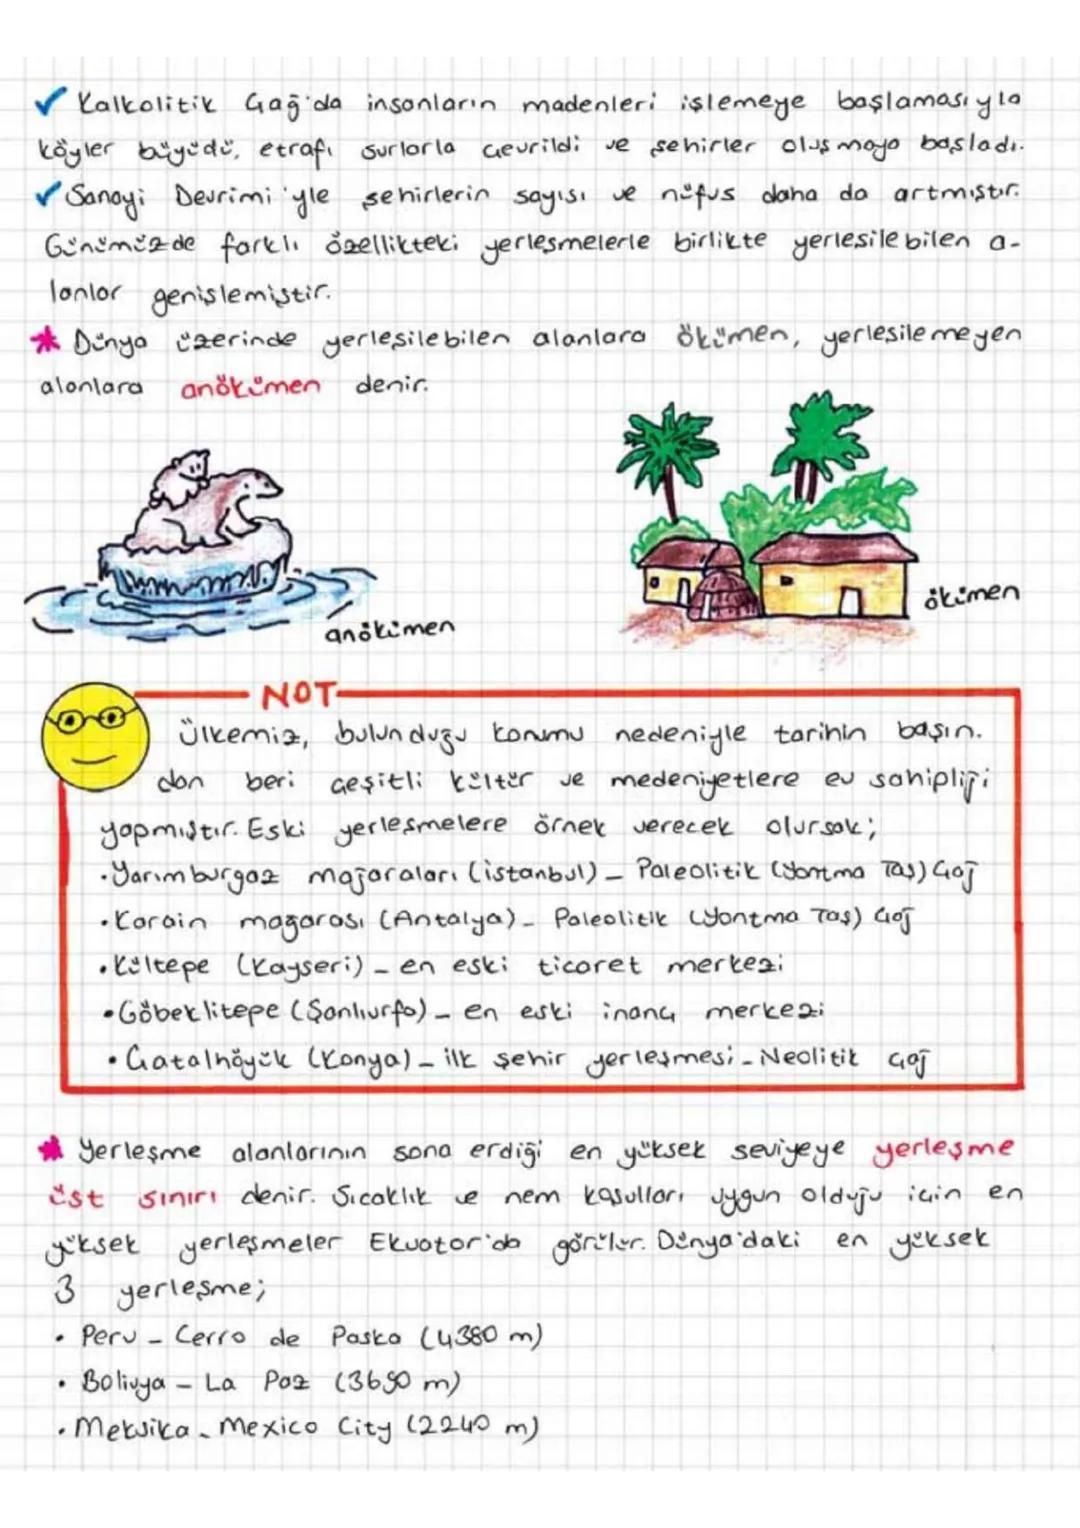 ✓ Kalkolitik Çağ'da insanların madenleri işlemeye başlamasıyla
köyler büyüdü, etrafı surlarla çevrildi ve şehirler oluşmaya başladı.
✓ Sanayi Devrimi'yle şehirlerin sayısı ve nüfus daha da artmıştır.
Günümüzde farklı özellikteki yerleşmelerle birlikte yerleşilebilen a-
lanlar genişlemiştir.
* Dünya üzerinde yerleşilebilen alanlara ökümen, yerleşilemeyen
alanlara anökümen denir.
anökümen
ökümen
NOT
Ülkemiz, bulunduğu konumu nedeniyle tarihin başın.
dan beri çeşitli kültür ve medeniyetlere ev sahipliği
yapmıştır. Eski yerleşmelere örnek verecek olursak;
• Yarımburgaz mağaraları (İstanbul) - Paleolitik (Yontma Taş) Çağ
• Karain mağarası (Antalya) - Paleolitik (Yontma Taş) Çağ
• Kültepe (Kayseri) - en eski ticaret merkezi
• Göbeklitepe (Şanlıurfa) - en eski inanç merkezi
• Çatalhöyük (Konya) - ilk şehir yerleşmesi - Neolitik Çağ
* Yerleşme alanlarının sona erdiği en yüksek seviyeye yerleşme
üst sınırı denir. Sıcaklık ve nem koşulları uygun olduğu için en
yüksek yerleşmeler Ekvator'da görülür. Dünya'daki en yüksek
3 yerleşme;
• Peru - Cerro de Pasko (4380 m)
• Bolivya - La Paz (3690 m)
• Meksika - Mexico City (2240 m)